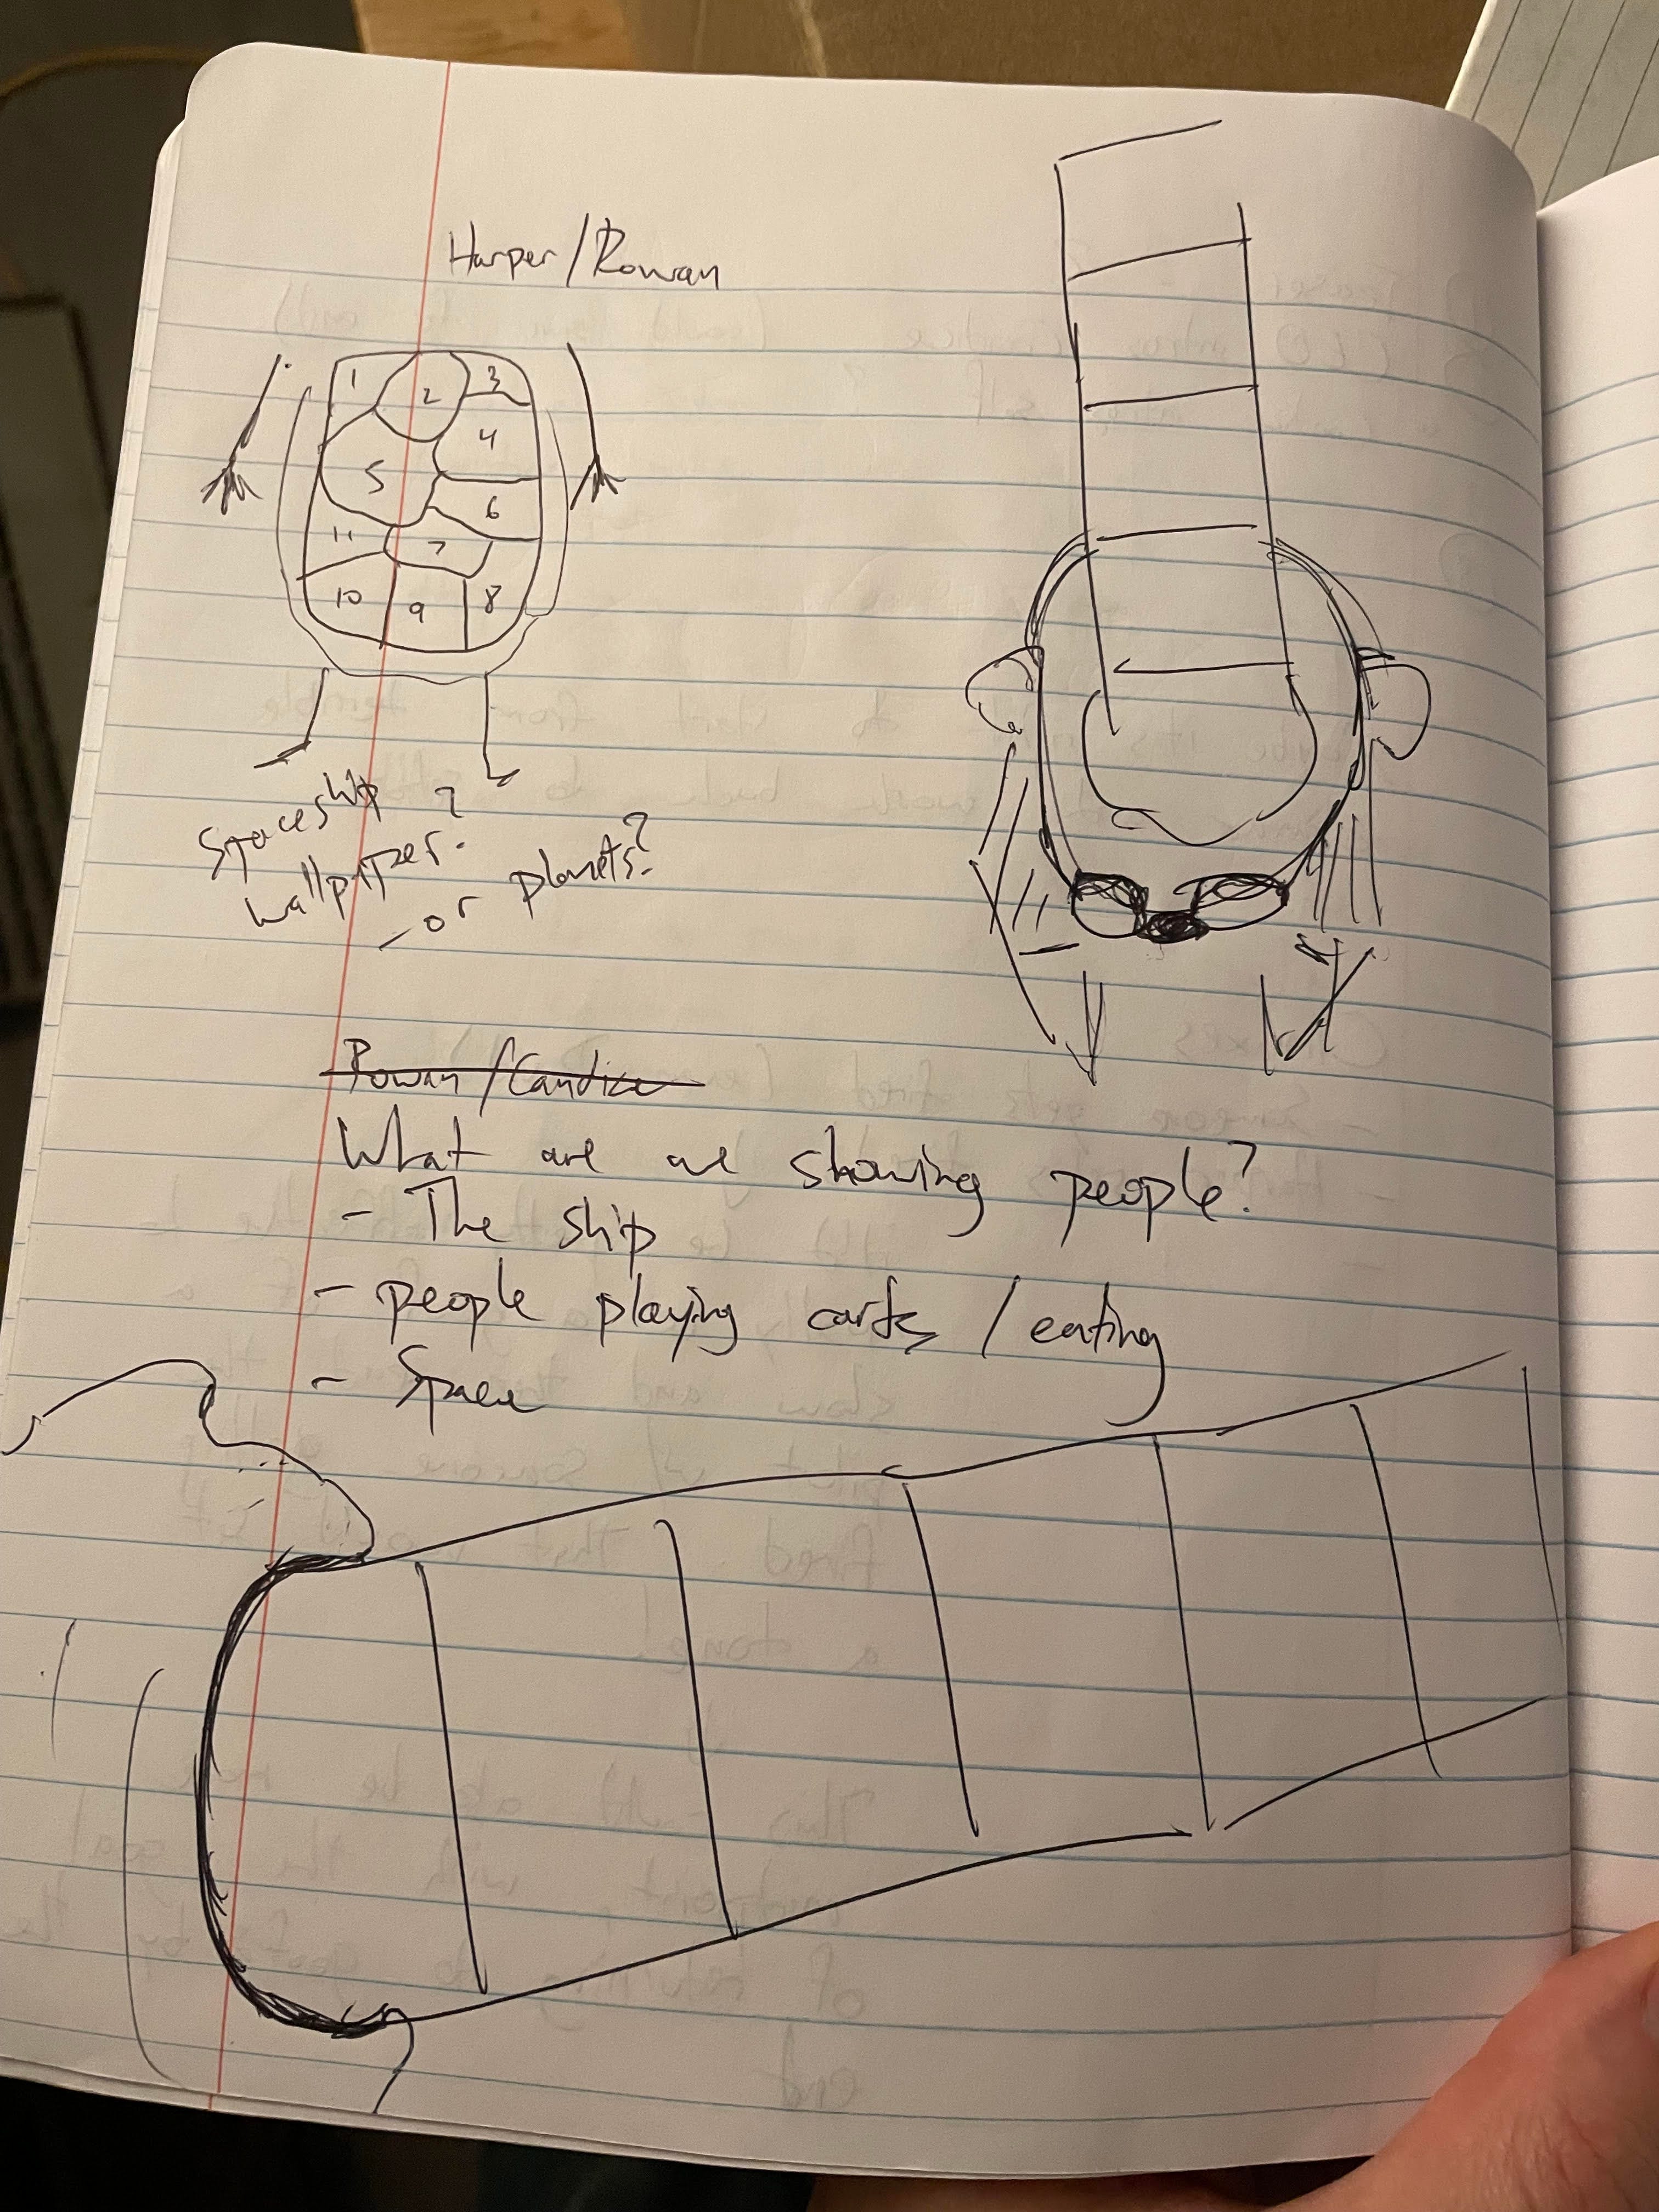 Harper/Rowan
1 2 3
4
5
6
11 7
10 9 8
Spaceship
wallpaper?
- or planets?
Rowan/Candice
What are we showing people?
- The ship
- people playing cards / eating
- Space